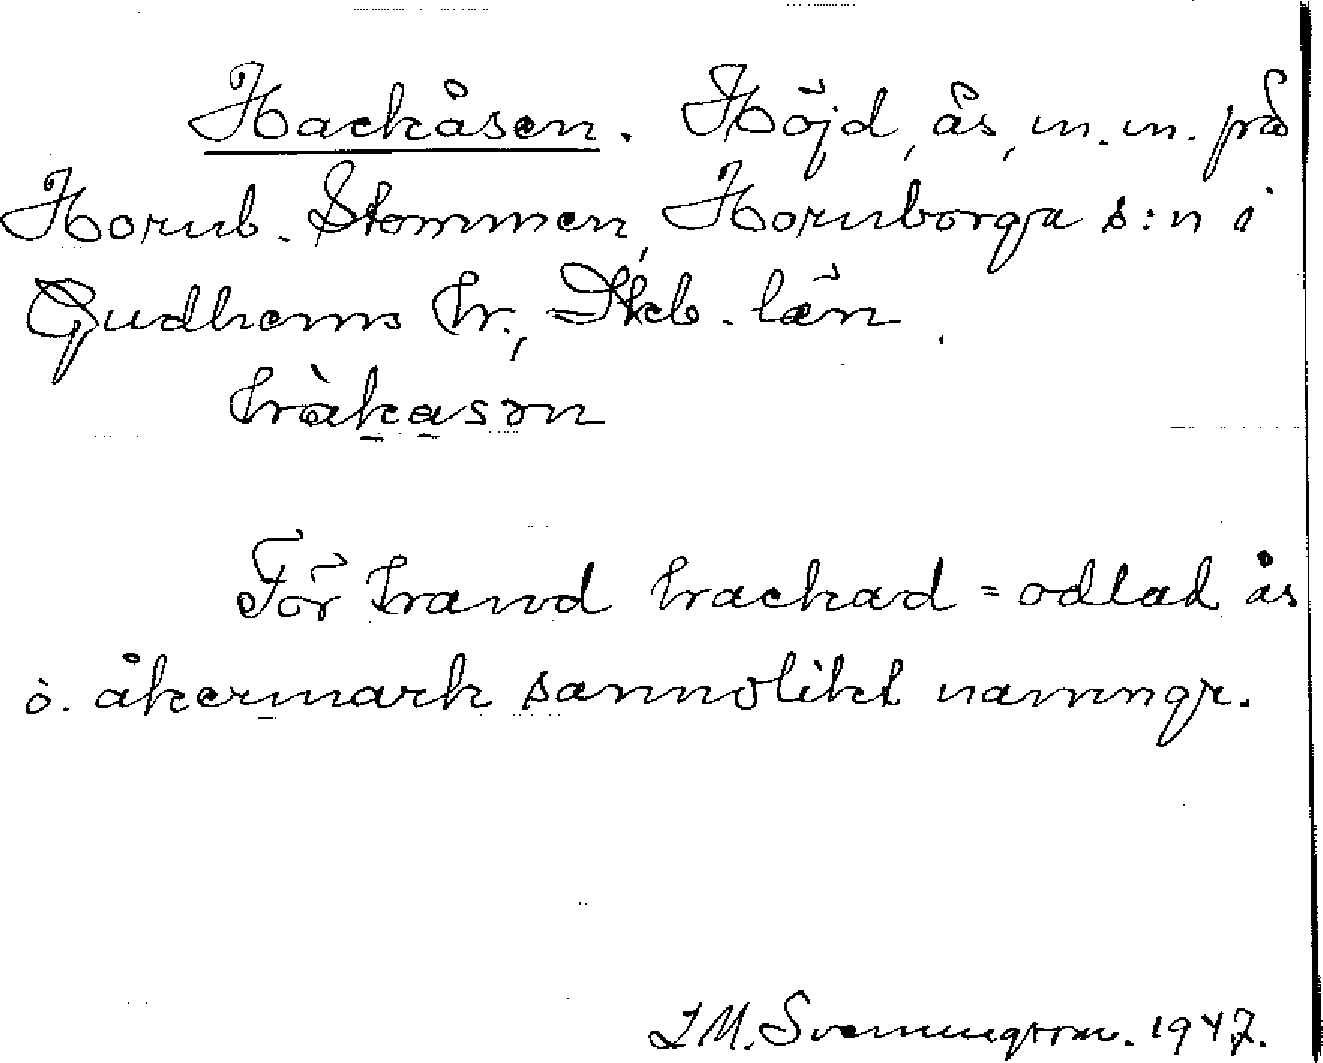 Hackåsen. Höjd, ås, m.m. på
Hornb. Stommen, Hornborga s:n i
Gudhems hr., Skb. län.
hàkasɘn
För hand hackad = odlad ås
o. åkermark sannolikt namngr.
I M. Svenungsson. 1947.